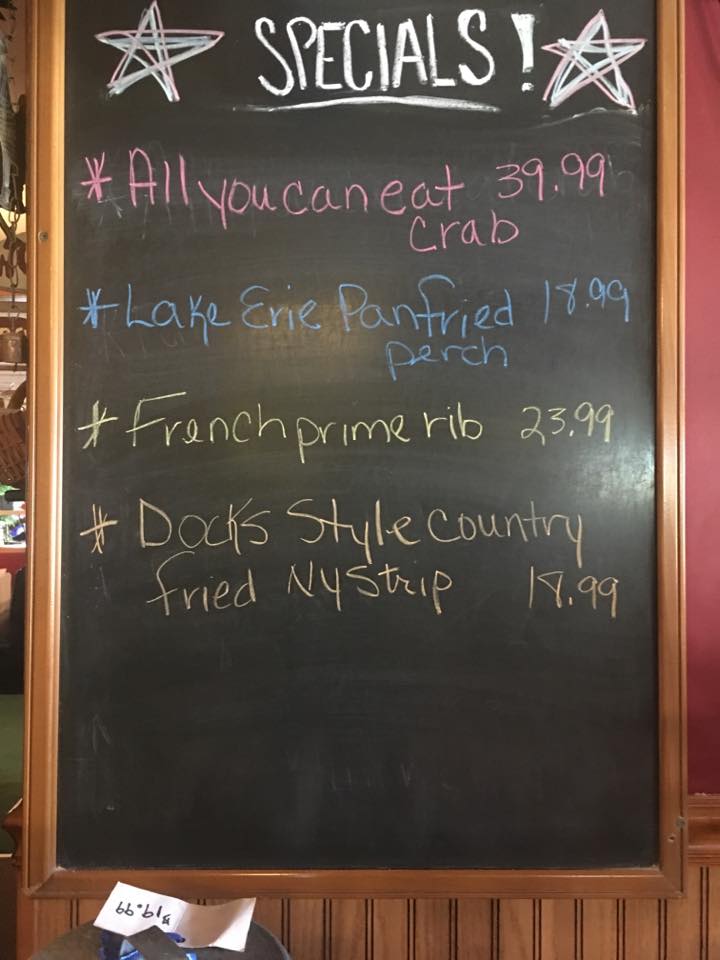 SPECIALS!
* All you can eat 39.99
crab
* Lake Erie Panfried 18.99
perch
* French prime rib 23.99
* Dock's Style country
fried NY Strip 18.99
$19.99